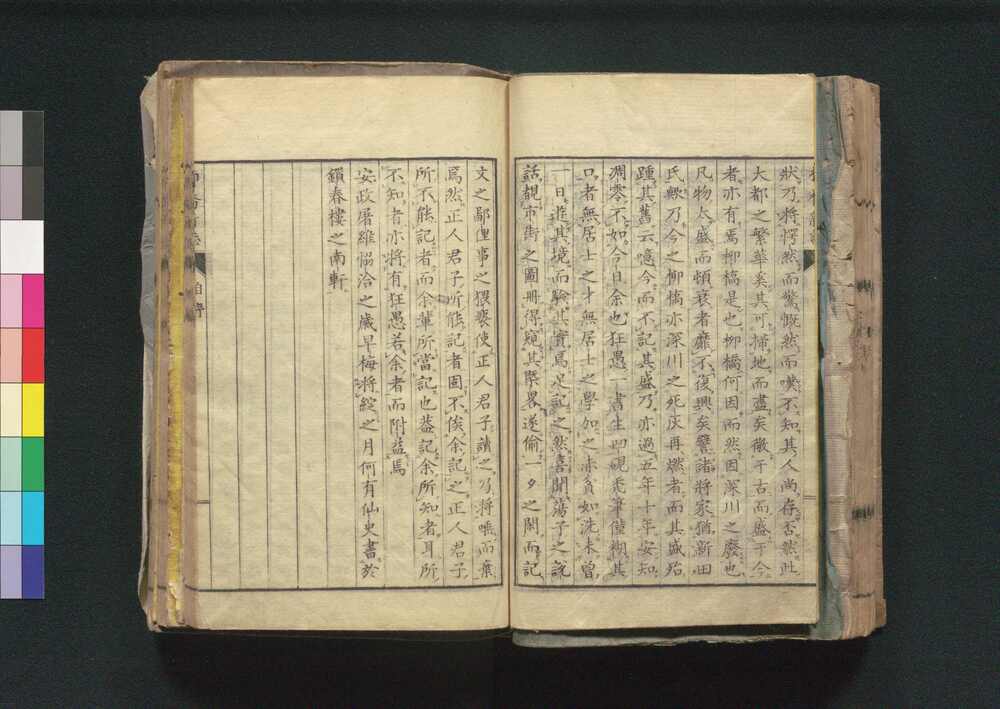 狀乃將愕然而驚慨然而嘆不知其人尚存否然此
大都之繁華矣其可掃地而盡矣徵于古而盛于今
者亦有焉柳橋是也柳橋何因而然因深川之廢也
凡物太盛而頓衰者靡不復興矣譬諸將家猶新田
氏歟乃今之柳橋亦深川之死灰再燃者而其盛殆
踵其舊云憶今而不記其盛乃亦過五年十年安知
凋零不如今日余也狂愚一書生凹硯禿筆僅糊其
口者無居士之才無居士之學加之赤貧如洗未曾
一日遊其境而驗其實焉足記之然喜聞蕩子之說
話覩市街之圖冊得窺其槩畧遂偷一夕之閑而記
文之鄙俚事之猥褻使正人君子讀之乃將唾而棄
焉然正人君子所能記者固不俟余記之正人君子
所不能記者而余輩所當記也葢記余所知者耳所
不知者亦將有狂愚若余者而附益焉
安政屠維協洽之歲早梅將綻之月何有仙史書於
鎖春樓之南軒
自序